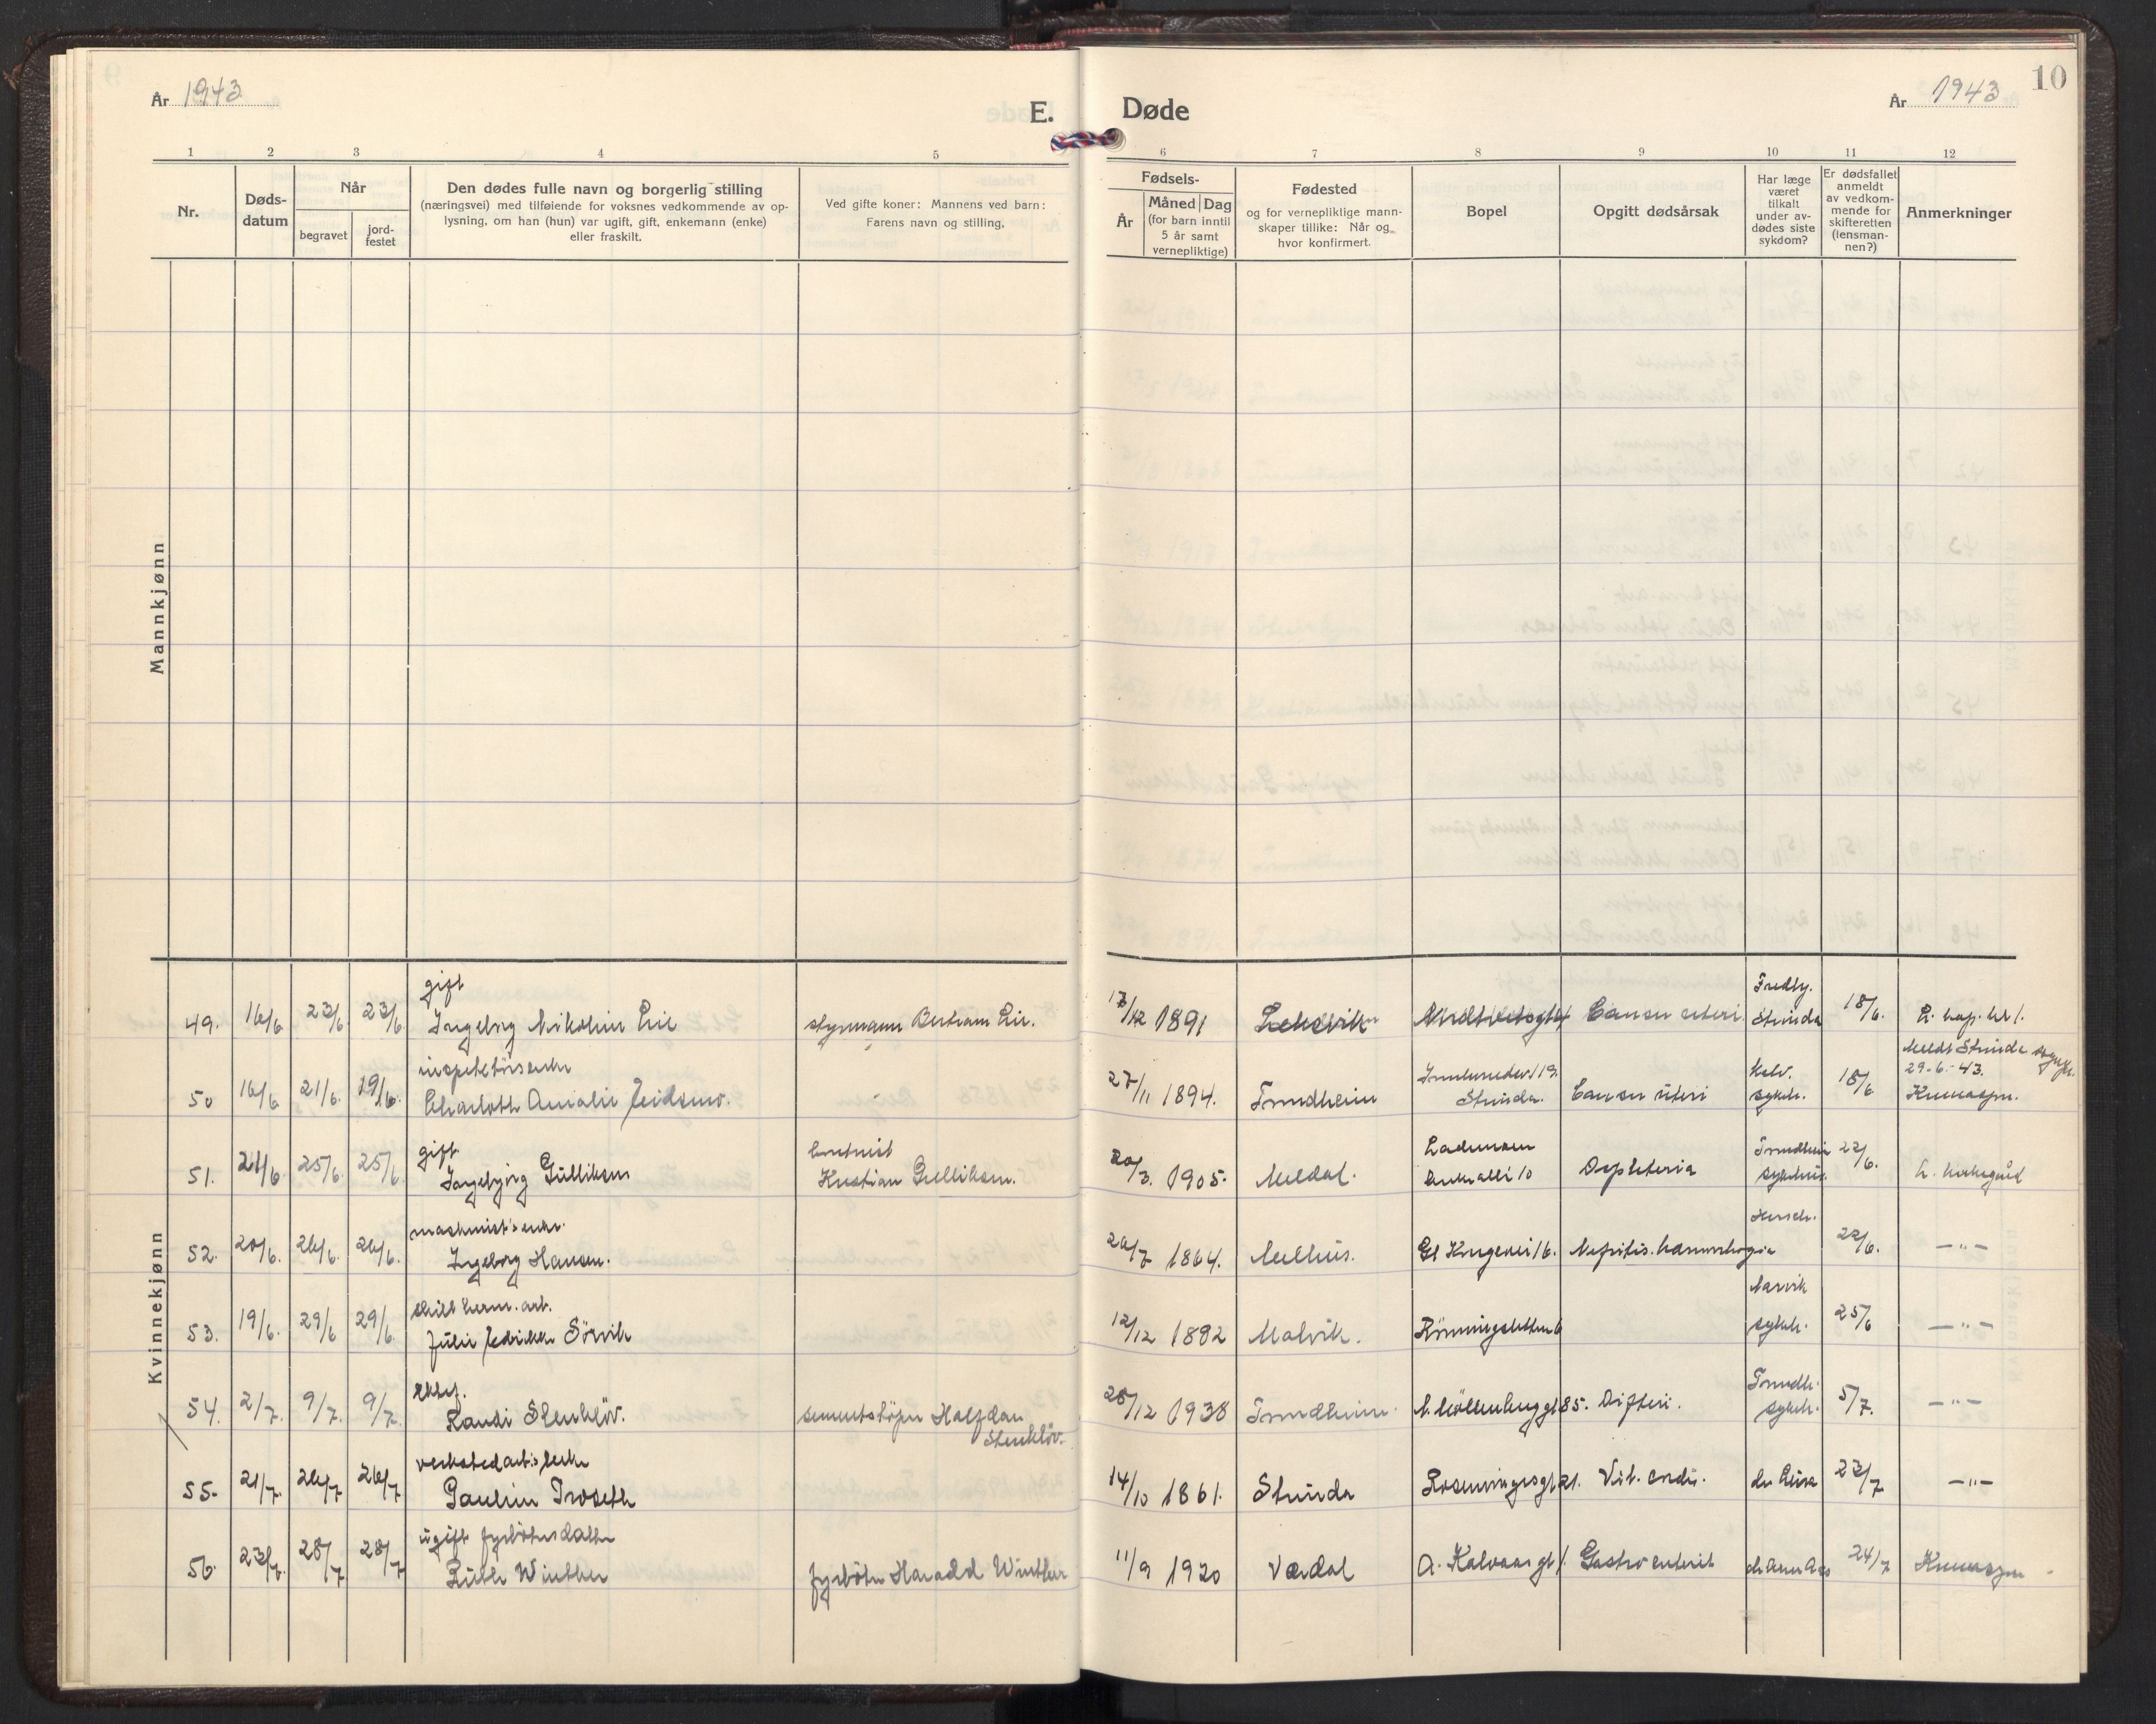 År 1943.
E. Døde
År 1943
10
1 2 3 4 5 6 7 8 9 10 11 12
Nr.
Døds-
datum
Når
begravet
jord-
festet
Den dødes fulle navn og borgerlig stilling
(næringsvei) med tilføiende for voksnes vedkommende av op-
lysning, om han (hun) var ugift, gift, enkemann (enke)
eller fraskilt.
Ved gifte koner: Mannens ved barn:
Farens navn og stilling.
Fødsels-
År
Måned Dag
(for barn inntil
5 år samt
vernepliktige)
Fødested
og for vernepliktige mann-
skaper tillike: Når og
hvor konfirmert.
Bopel
Opgitt dødsårsak
Har læge
været
tilkalt
under av-
dødes siste
sykdom?
Er dødsfallet
anmeldt
av vedkom-
mende for
skifteretten
(lensman-
nen?)
Anmerkninger
Mannkjønn
Kvinnekjønn
gift
49. 16/6 23/6 23/6 Ingeborg Nikoline Lie styrmann Bertram Lie. 1891 Leksvik Cancer uteri Strinda 18/6. L. kap. kl 1.
Meldt Strinda
29-6-43.
50 16/6 21/6. 19/6. Charlotte Amalie 27/11 1894. Trondheim Strinda. Cancer uteri sykeh. 18/6 Kremasjon.
gift
51. 21/6 25/6 25/6 Ingebjørg Gulliksen Kristian Gulliksen. 20/3. 1905. Meldal. Lademoen 10 Trondheim sykehus. 22/6. L. kirkegård
maskinist's enke.
52. 20/6. 26/6. 26/6. Ingeborg Hansen. 26/7 1864. Melhus. Gl Kongevei 16. 22/6. —"—
53. 19/6. 29/6 29/6. Julie Sörvik 12/12 1892 Malvik. Rönningsletten 6 Narvik sykeh. 25/6 —"—
54. 2/7. 9/7. 9/7. Randi Stenklöv. sementstöper Halfdan Stenklöv. 12 1938 Trondheim. 85. Difteri. Trondh. sykeh. 5/7. —"—
55. 21/7. 26/7 26/7 Pauline Troseth 14/10 1861. Strinda 21. Vit. cordis. 23/7 —"—
ugift fyrböterdatter
56. 23/7. 28/7 28/7 Ruth Winther fyrböter Harald Winther 11/9 1920 Verdal A. Kalvaas gt 1. Gastroenterit 24/7 Kremasjon